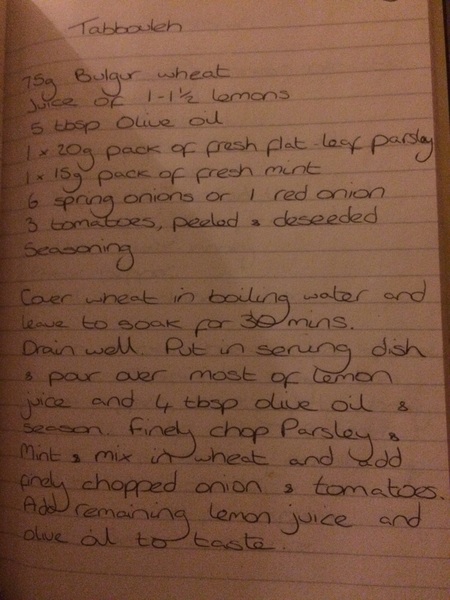 Tabbouleh
75g Bulgur wheat
Juice of 1-1½ lemons
5 tbsp Olive oil
1 x 20g pack of fresh flat-leaf parsley
1 x 15g pack of fresh mint
6 spring onions or 1 red onion
3 tomatoes, peeled & deseeded
Seasoning
Cover wheat in boiling water and
leave to soak for 30 mins.
Drain well. Put in serving dish
& pour over most of lemon
juice and 4 tbsp olive oil &
season. Finely chop Parsley &
Mint & mix in wheat and add
finely chopped onion & tomatoes.
Add remaining lemon juice and
olive oil to taste.